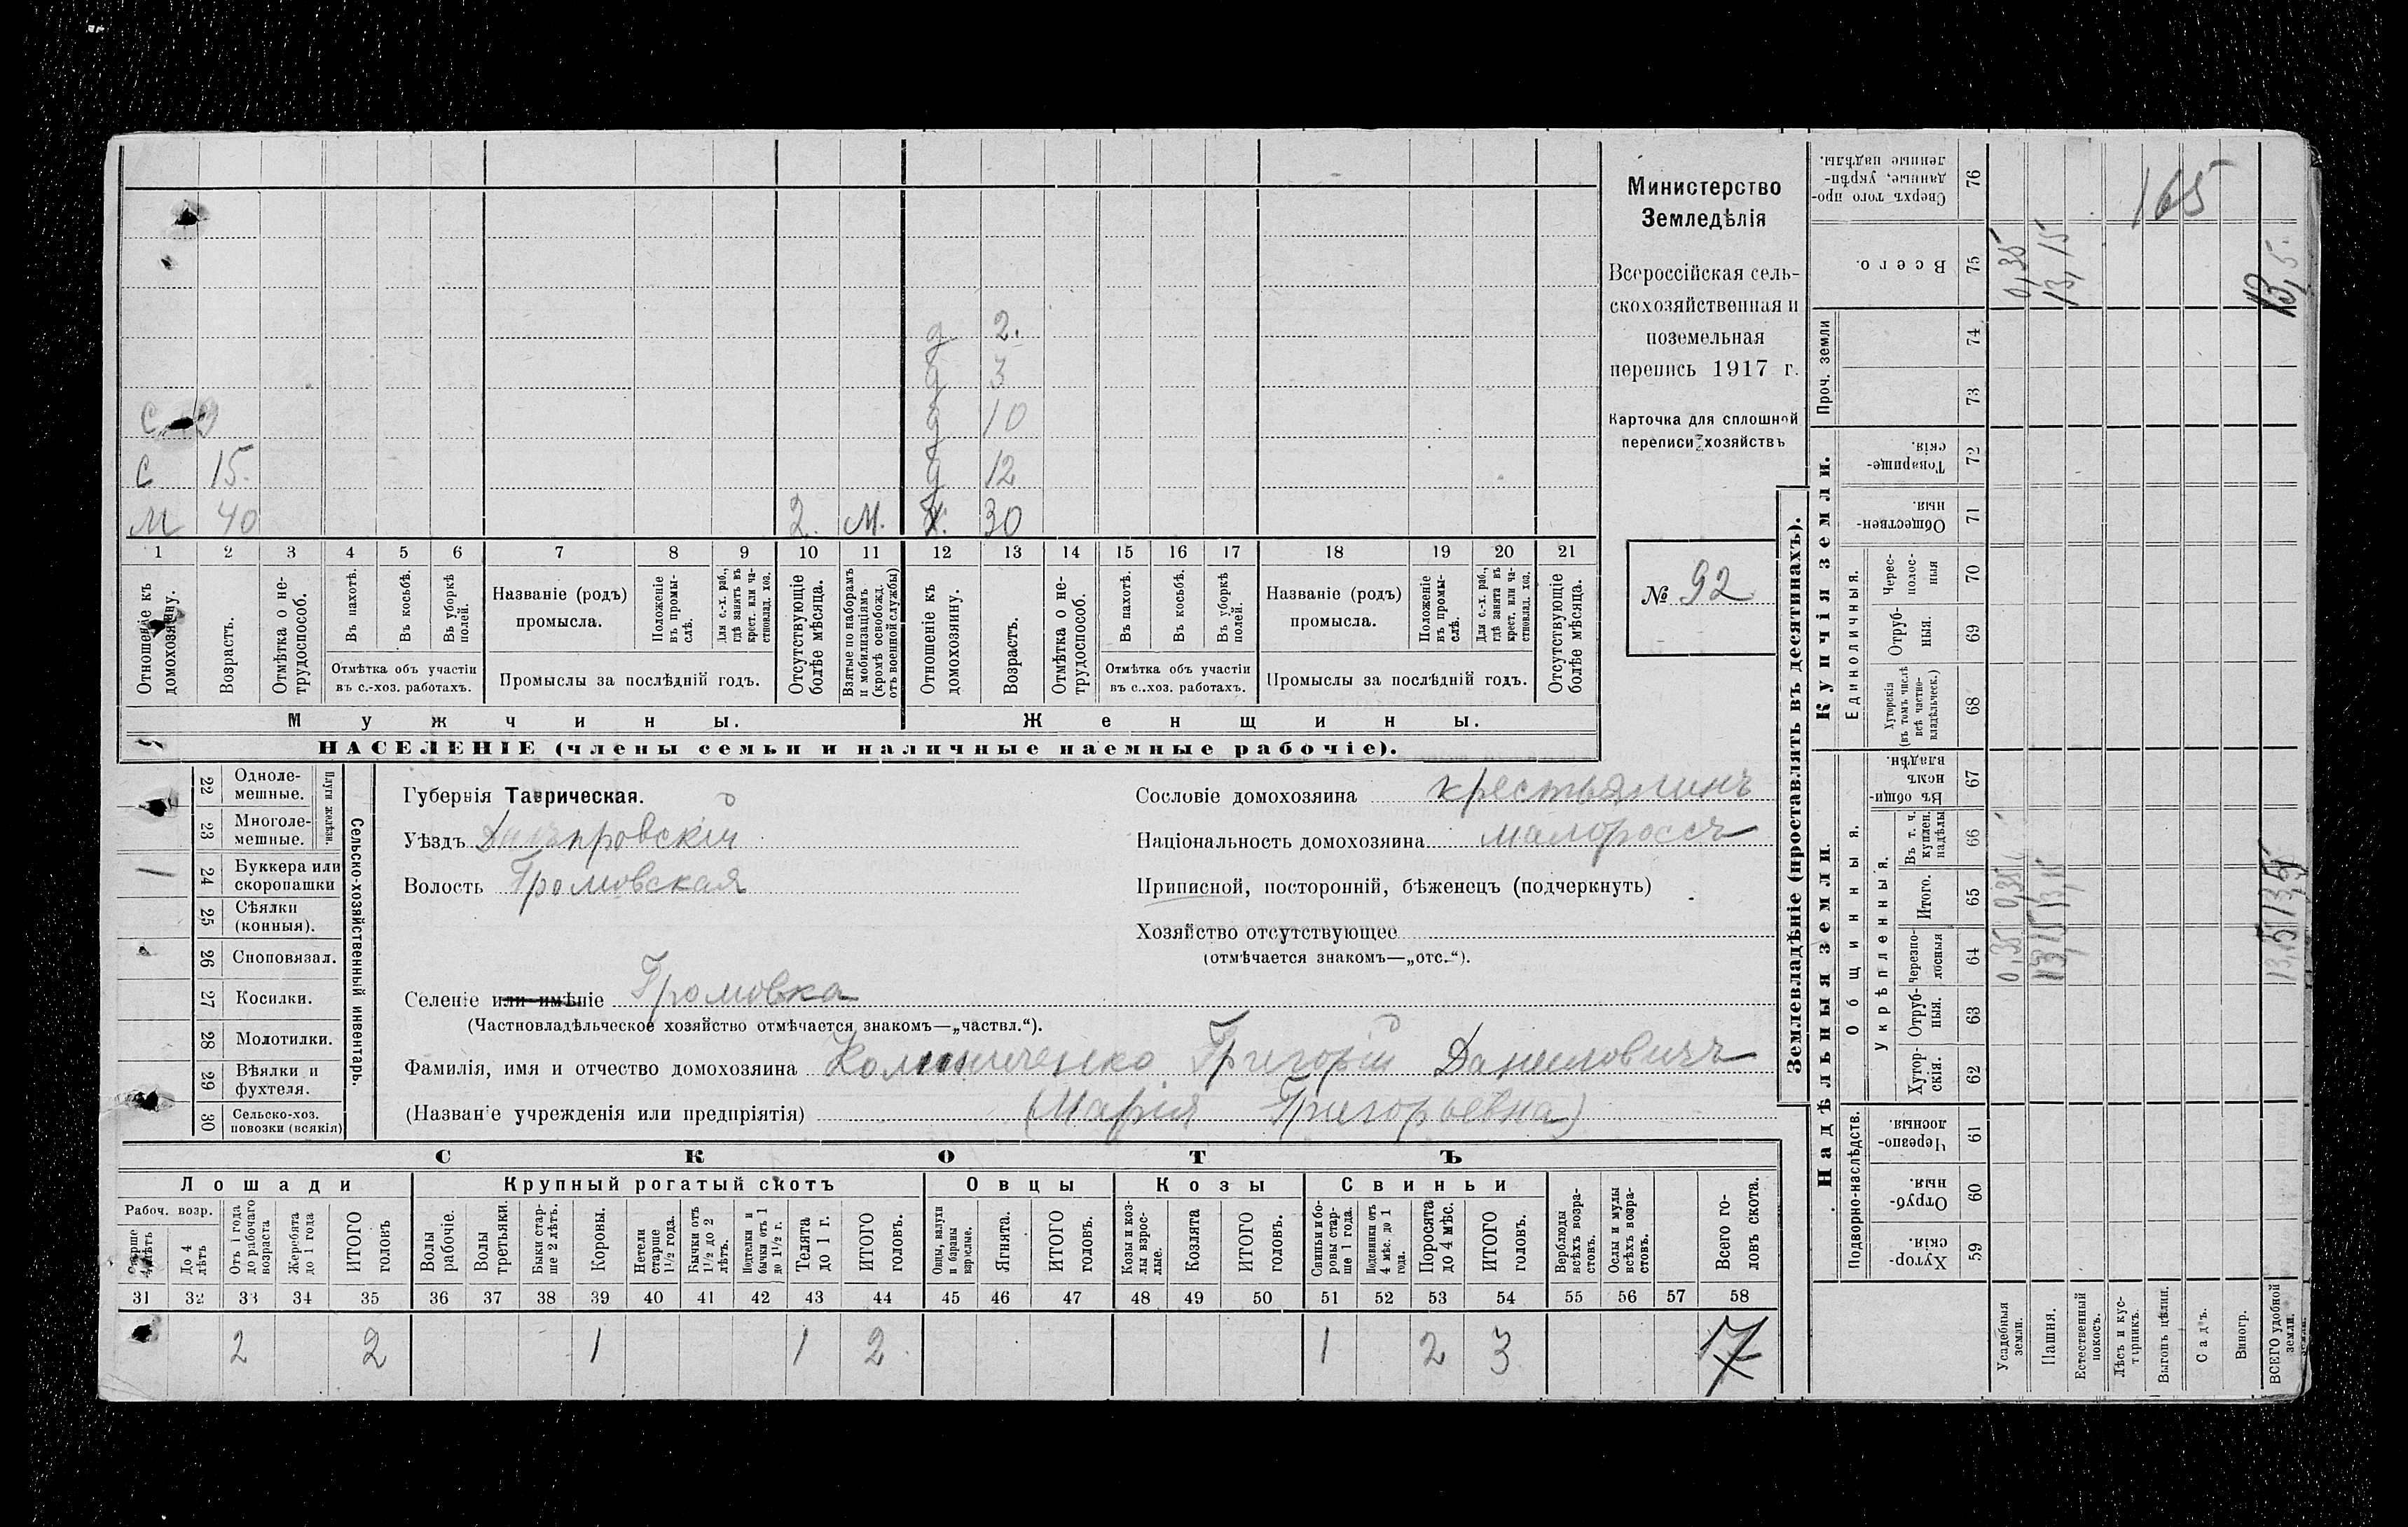 д 2.
д 3
С 9 д 10
С 15. д 12
М 40 2. М. Х. 30
1 2 3 4 5 6 7 8 9 10 11 12 13 14 15 16 17 18 19 20 21
Отношеніе къ домохозяину.
Возрастъ.
Отмѣтка о не-трудоспособ.
Въ пахотѣ.
Въ косьбѣ.
Въ уборкѣ полей.
Отмѣтка объ участіи
въ с.-хоз. работахъ.
Названіе (родъ)
промысла.
Положеніе въ промы-слѣ.
Для с.-х. раб., гдѣ занятъ въ крест. или ча-стновлад. хоз.
Промыслы за послѣдній годъ.
Отсутствующіе болѣе мѣсяца.
Взятые по наборамъ и мобилизаціямъ (кромѣ освобожд. отъ военной службы)
Отношеніе къ домохозяину.
Возрастъ.
Отмѣтка о не-трудоспособ.
Въ пахотѣ.
Въ косьбѣ.
Въ уборкѣ полей.
Отмѣтка объ участіи
въ с..хоз. работахъ.
Названіе (родъ)
промысла.
Положеніе въ промы-слѣ.
Для с.-х. раб., гдѣ занята въ крест. или ча-стновлад. хоз.
Промыслы за послѣдній годъ.
Отсутствующіе болѣе мѣсяца.
Мужчины. Женщины.
НАСЕЛЕНІЕ (члены семьи и наличные наемные рабочіе).
Министерство
Земледѣлія
Всероссійская сель-
скохозяйственная и
поземельная
перепись 1917 г.
Карточка для сплошной
переписи хозяйствъ
№ 92
22 Одноле-мешные.
23 Многоле-мешные.
Плуги желѣзн.
24 Буккера или скоропашки 1
25 Сѣялки (конныя).
26 Сноповязал.
27 Косилки.
28 Молотилки.
29 Вѣялки и фухтеля.
30 Сельско-хоз. повозки (всякія)
Сельско-хозяйственный инвентарь.
Губернія Таврическая.
Уѣздъ Днѣпровскій
Волость Громовская
Селеніе или имѣніе Громовка
(Частновладѣльческое хозяйство отмѣчается знакомъ—„частвл.“).
Фамилія, имя и отчество домохозяина Григорій Даниловичъ
(Названіе учрежденія или предпріятія) (Марія Григорьевна)
Сословіе домохозяина крестьянинъ
Національность домохозяина малороссъ
Приписной, посторонній, бѣженецъ (подчеркнуть)
Хозяйство отсутствующее
(отмѣчается знакомъ—„отс.“).
СКОТЪ
Лошади Крупный рогатый скотъ Овцы Козы Свиньи
Рабоч. возр.
Старше 4 лѣтъ
До 4 лѣтъ
Отъ 1 года до рабочаго возраста
Жеребята до 1 года
ИТОГО головъ
Волы рабочіе.
Волы третьяки.
Быки стар-ше 2 лѣтъ.
Коровы.
Нетели старше 1½ года.
Бычки отъ 1½ до 2 лѣтъ.
Подтелки и бычки отъ 1 до 1½ г.
Телята до 1 г.
ИТОГО головъ.
Овцы, валухи и бараны взрослые.
Ягнята.
ИТОГО головъ.
Козы и коз-лы взрос-лые.
Козлята
ИТОГО головъ.
Свиньи и бо-ровы стар-ше 1 года.
Подсвинки отъ 4 мѣс. до 1 года.
Поросята до 4 мѣс.
ИТОГО головъ.
Верблюды всѣхъ возра-стовъ.
Ослы и мулы всѣхъ возра-стовъ.
Всего го-ловъ скота.
31 32 33 34 35 36 37 38 39 40 41 42 43 44 45 46 47 48 49 50 51 52 53 54 55 56 57 58
2 2 1 1 2 1 2 3 17
Землевладѣніе (проставлять въ десятинахъ).
Надѣльныя земли. Купчія земли.
Подворно-наслѣдств.
Общинныя.
Укрѣпленныя.
Единоличныя.
Проч. земли
Сверхъ того про-данные, укрѣп-ленные надѣлы. 76
Всего. 75
74
73
Товарище-скія. 72
Обществен-ныя. 71
Черес-полос-ныя 70
Отруб-ныя. 69
Хуторскія (въ томъ числѣ всѣ частно-владѣльческ.) 68
Въ общин-номъ владѣн. 67
Въ т. ч. куплен. надѣлы 66
Итого. 65
Черезпо-лосныя 64
Отруб-ныя. 63
Хутор-скія. 62
Черезпо-лосныя. 61
Отруб-ныя. 60
Хутор-скія. 59
Усадебныя земли. 0,35 0,35 0,35
Пашня. 13,15 13,15 13,15
Естественный покосъ.
Лѣсъ и кус-тарникъ.
Выгонъ цѣлин.
Садъ.
Виногр.
ВСЕГО удобной земли. 13,5 13,5 13,5
165